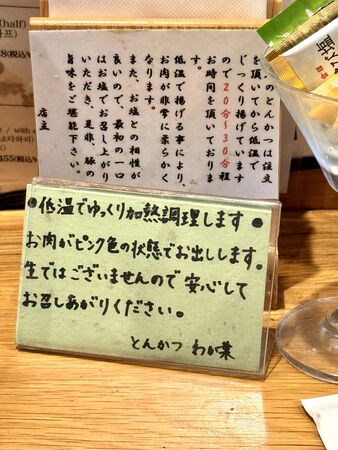 (half)
のとんかつは注文
を頂いてから低温で
じっくり揚げています
ので20分〜30分程
お時間を頂いておりま
す。
低温で揚げる事により、
お肉が非常に柔らかく
なります。
また、お塩との相性が
良いので、最初の一口
はお塩でお召し上がり
いただき、是非、豚の
旨味をご堪能下さい。
店主
●低温でゆっくり加熱調理します●
お肉がピンク色の状態でお出しします。
生ではございませんので安心して
お召しあがりください。
とんかつ わか葉